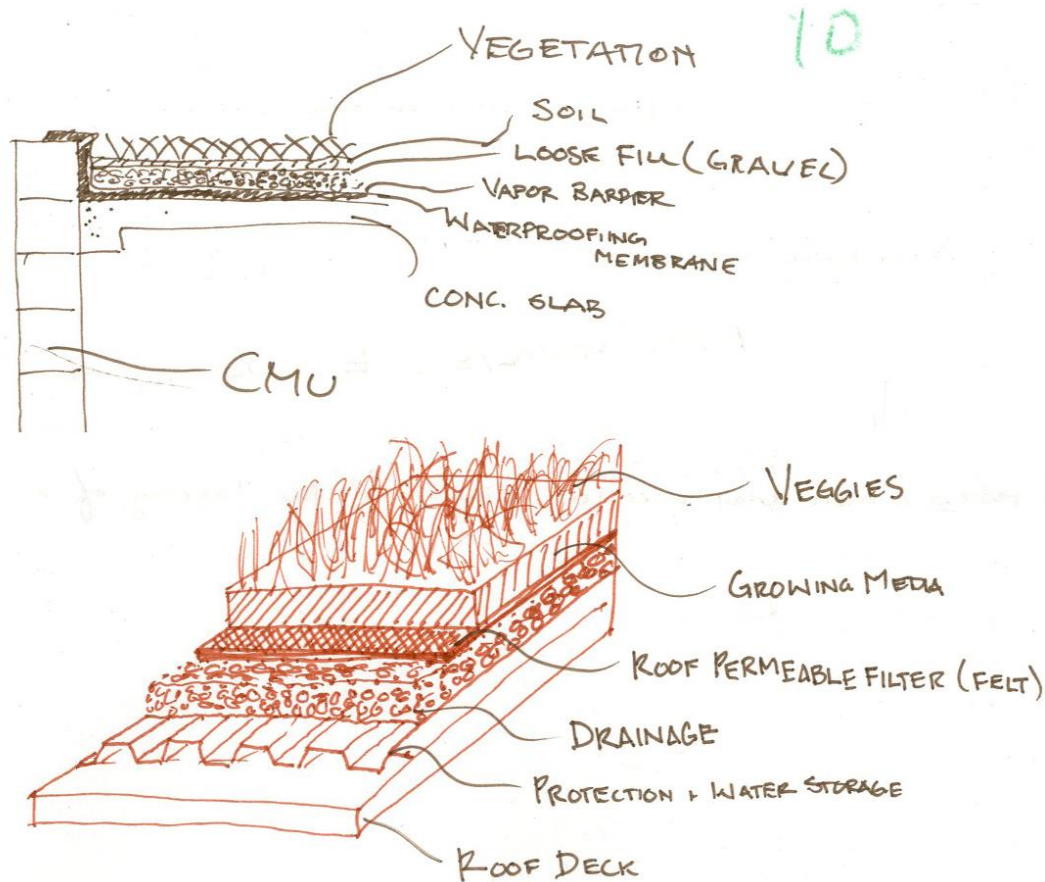 10
VEGETATION
SOIL
LOOSE FILL (GRAVEL)
VAPOR BARRIER
WATERPROOFING
MEMBRANE
CONC. SLAB
CMU
VEGGIES
GROWING MEDIA
ROOF PERMEABLE FILTER (FELT)
DRAINAGE
PROTECTION + WATER STORAGE
ROOF DECK